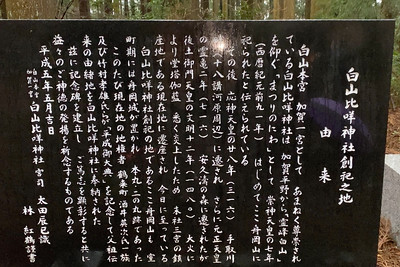 白山比咩神社創祀之地
由来
白山本宮 加賀一宮として あまねく尊崇され
ている白山比咩神社は 加賀平野から“霊峰白山
を仰ぐ“まつりのにわ”として 崇神天皇の七年
(西暦紀元前九一年) はじめてここ舟岡山に
祀られたと伝えられている
その後 応神天皇の廿八年(三一六) 手取川
の十八講河原周辺に遷され さらに元正天皇
の霊亀二年(七一六) 安久濤の森に遷されたが
後土御門天皇の文明十二年(一四八〇) 大火に
より堂塔伽藍 悉く炎上したため 末社三宮の鎮
座地である現在地に遷座され 今日に至っている
白山比咩神社創祀の地であるここ舟岡山も 室
町期には舟岡城が置かれ 本丸二の丸跡であった
このたび現在地の地権者 鶴来町 酒井
及び竹村孝雄
来の由緒地を白山比咩神社に奉納された
茲に記念碑を建立し ご篤志を顕彰すると共に
益々のご神徳の発揚を祈念するものである
平成五年五月吉日
白山本宮
加賀一宮
白山比咩神社 宮司 太田
林 紅鶴 謹書